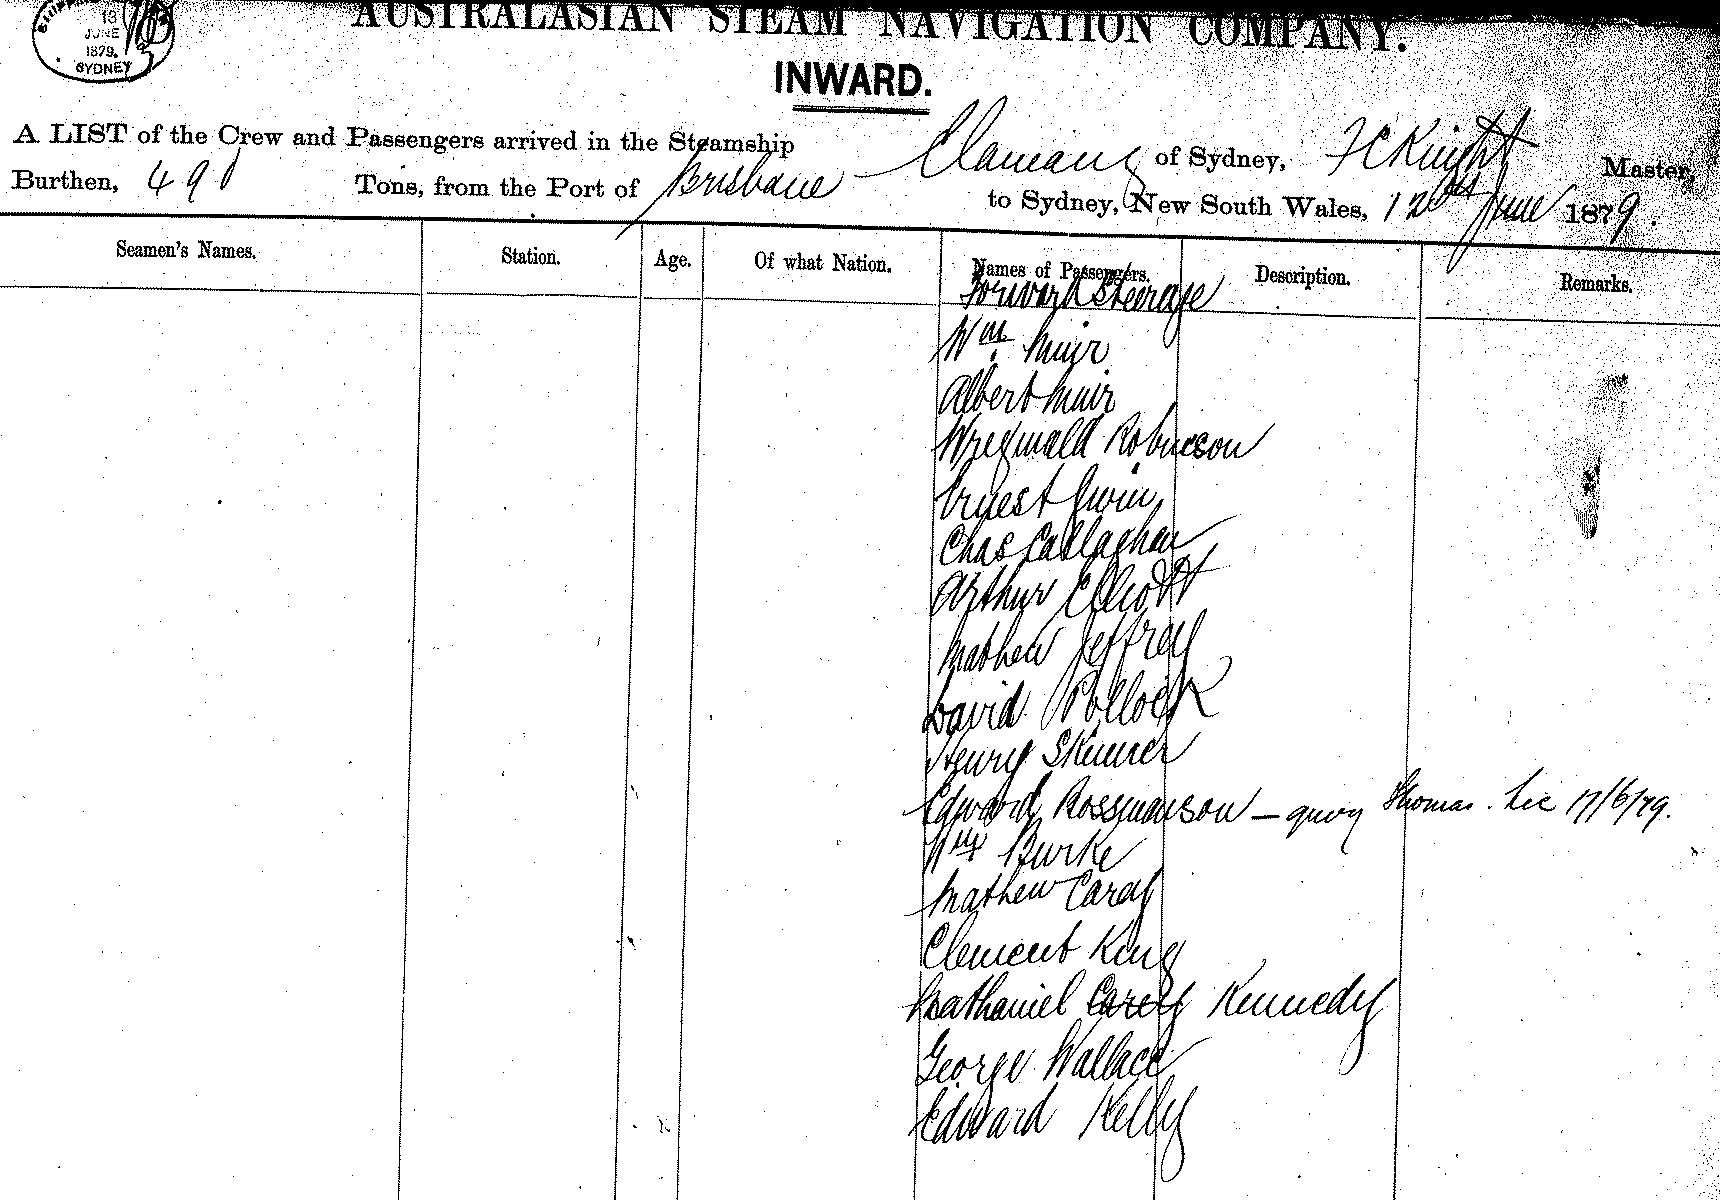 13
JUNE
1879.
SYDNEY
AUSTRALASIAN STEAM NAVIGATION COMPANY.
INWARD.
A LIST of the Crew and Passengers arrived in the Steamship Clanranz of Sydney, F C Knight Master,
Burthen, 490 Tons, from the Port of Brisbane to Sydney, New South Wales, 12th June 1879.
Seamen's Names. Station. Age. Of what Nation. Names of Passengers. Description. Remarks.
Forward Steerage
Wm Muir
Albert Muir
Wreginald Robinson
Ernest Irwin
Chas Callaghan
Arthur Elliott
Mathew Jeffrey
David Pollock
Henry Skinner
Edward Rossmanson — query Thomas. Lic 17/6/79.
Wm Burke
Mathew Carey
Clement King
Nathaniel Carey Kennedy
George Wallace
Edward Kelly